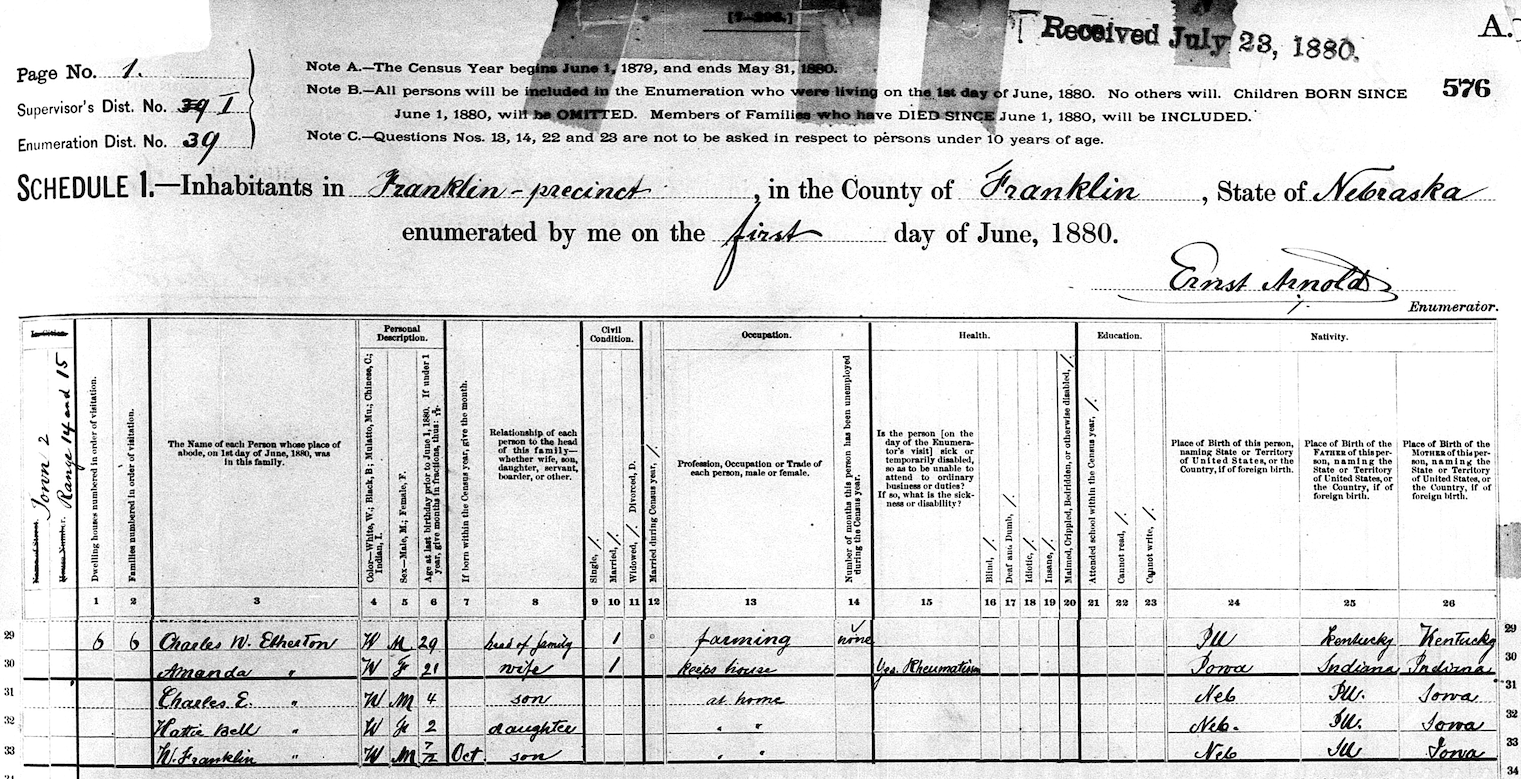 [7-296.]
Received July 23, 1880.
A.
Page No. 1.
Supervisor's Dist. No. 39 I
Enumeration Dist. No. 39
Note A.—The Census Year begins June 1, 1879, and ends May 31, 1880.
Note B.—All persons will be included in the Enumeration who were living on the 1st day of June, 1880. No others will. Children BORN SINCE
June 1, 1880, will be OMITTED. Members of Families who have DIED SINCE June 1, 1880, will be INCLUDED.
Note C.—Questions Nos. 13, 14, 22 and 23 are not to be asked in respect to persons under 10 years of age.
576
SCHEDULE 1.—Inhabitants in Franklin-precinct, in the County of Franklin, State of Nebraska
enumerated by me on the first day of June, 1880.
Ernst Arnold
Enumerator.
In Cities.
Name of Street. Town 2
House Number. Range 14 and 15
Dwelling houses numbered in order of visitation.
Families numbered in order of visitation.
The Name of each Person whose place of
abode, on 1st day of June, 1880, was
in this family.
Personal
Description.
Color—White, W.; Black, B.; Mulatto, Mu.; Chinese, C.;
Indian, I.
Sex—Male, M.; Female, F.
Age at last birthday prior to June 1, 1880. If under 1
year, give months in fractions, thus:
If born within the Census year, give the month.
Relationship of each
person to the head
of this family—
whether wife, son,
daughter, servant,
boarder, or other.
Civil
Condition.
Single, /.
Married, /.
Widowed, /. Divorced, D.
Married during Census year, /.
Occupation.
Profession, Occupation or Trade of
each person, male or female.
Number of months this person has been unemployed
during the Census year.
Health.
Is the person [on the
day of the Enumera-
tor's visit] sick or
temporarily disabled,
so as to be unable to
attend to ordinary
business or duties?
If so, what is the sick-
ness or disability?
Blind, /.
Deaf and Dumb, /.
Idiotic, /.
Insane, /.
Maimed, Crippled, Bedridden, or otherwise disabled, /.
Education.
Attended school within the Census year, /.
Cannot read, /.
Cannot write, /.
Nativity.
Place of Birth of this person,
naming State or Territory
of United States, or the
Country, if of foreign birth.
Place of Birth of the
FATHER of this per-
son, naming the
State or Territory
of United States, or
the Country, if of
foreign birth.
Place of Birth of the
MOTHER of this per-
son, naming the
State or Territory
of United States, or
the Country, if of
foreign birth.
1 2 3 4 5 6 7 8 9 10 11 12 13 14 15 16 17 18 19 20 21 22 23 24 25 26
29 6 6 Charles W. Etherton W M 29 head of family 1 farming none Ill Kentucky Kentucky 29
30 Amanda " W F 21 wife 1 keeps house Yes. Rheumatism Iowa Indiana Indiana 30
31 Charles E. " W M 4 son at home Neb Ill. Iowa 31
32 Hattie Bell " W F 2 daughter " " Neb. Ill. Iowa 32
33 W. Franklin " W M 7/12 Oct. son " " Neb Ill Iowa 33
34